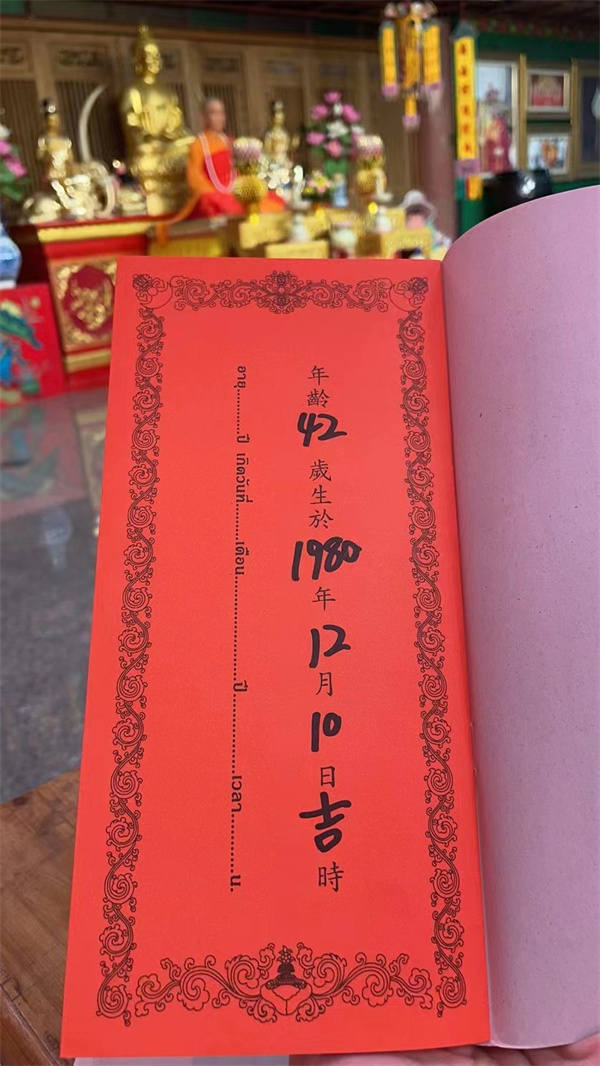 年齡42歲生於1980年12月10日吉時
อายุ............ปี เกิดวันที่.........เดือน....................ปี..................เวลา............น.